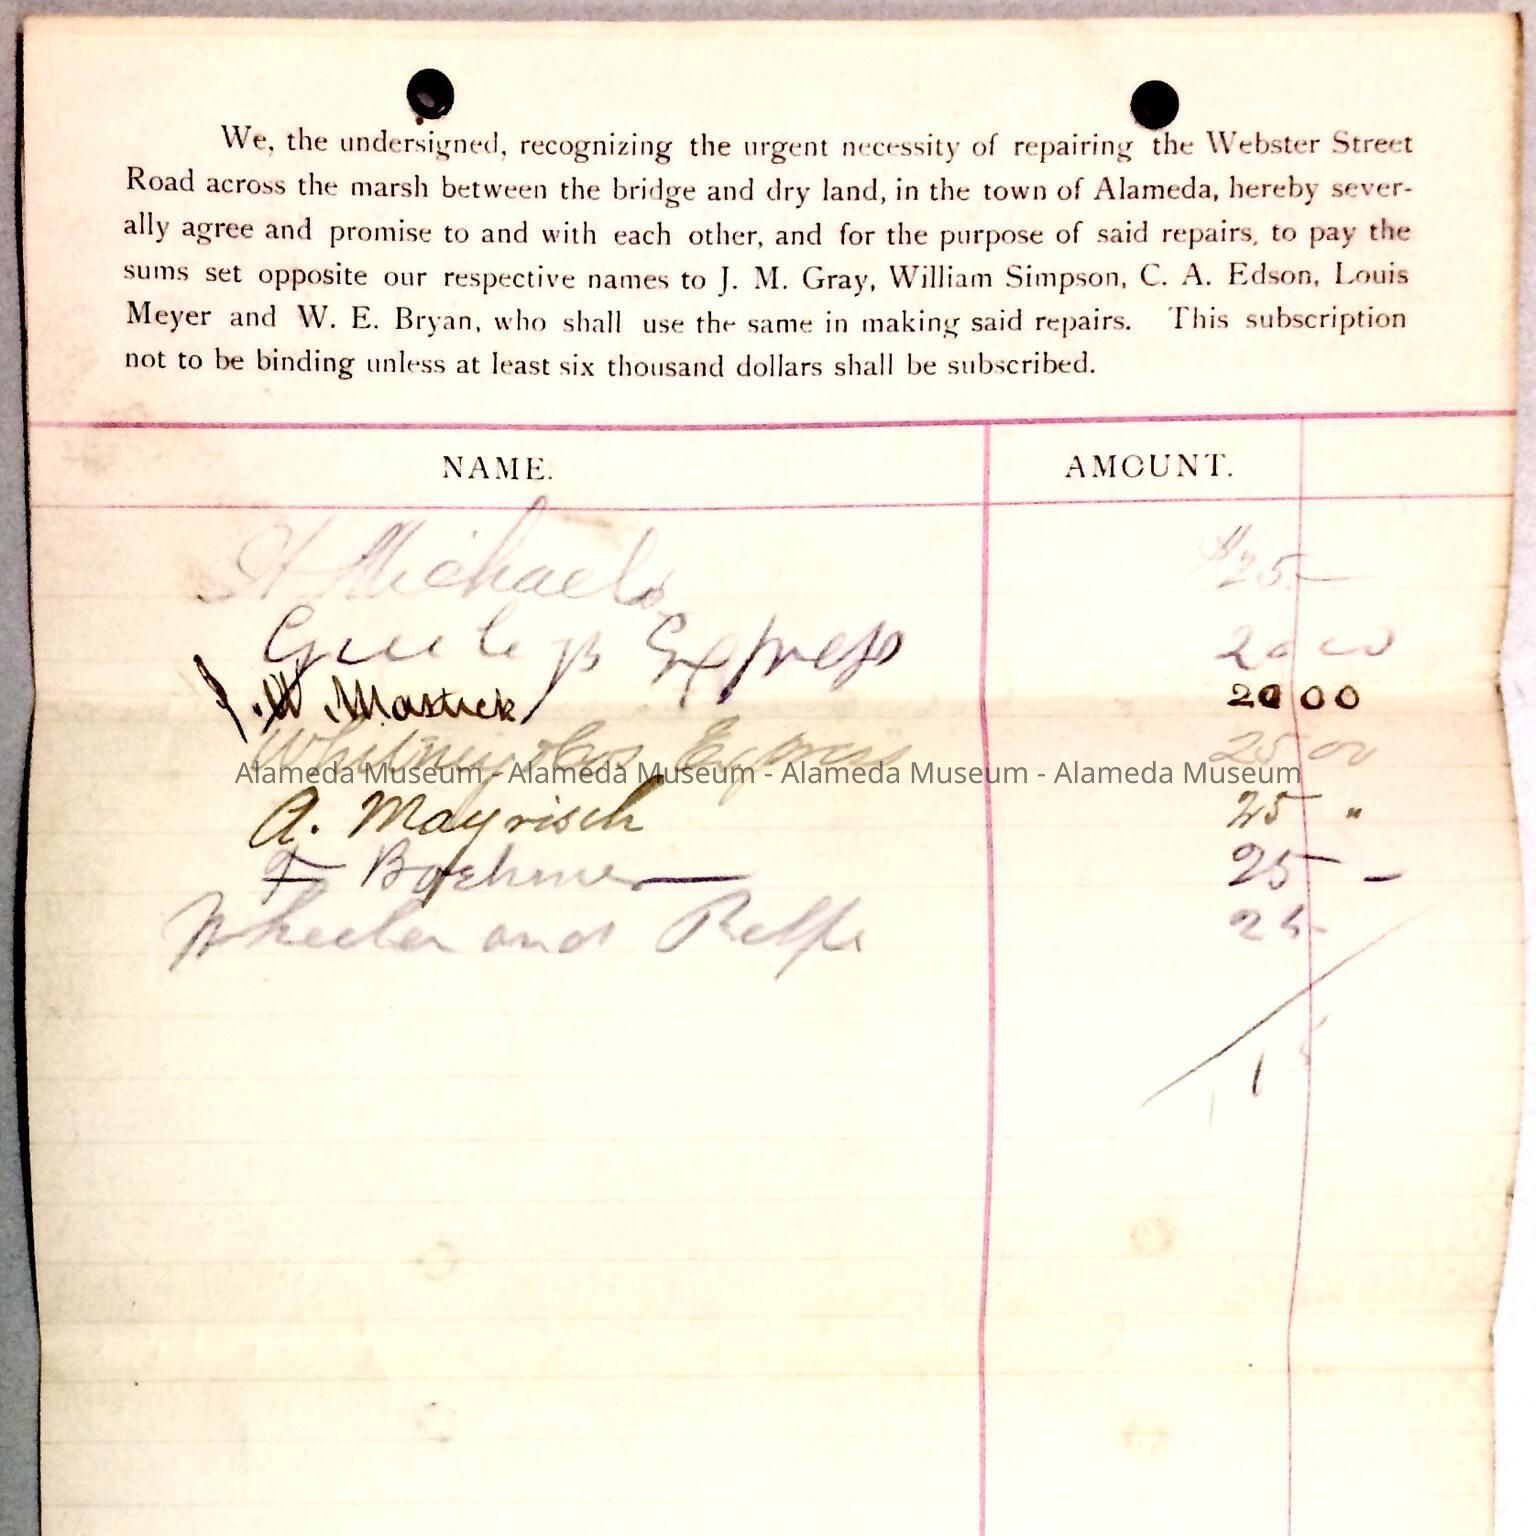 We, the undersigned, recognizing the urgent necessity of repairing the Webster Street
Road across the marsh between the bridge and dry land, in the town of Alameda, hereby sever-
ally agree and promise to and with each other, and for the purpose of said repairs, to pay the
sums set opposite our respective names to J. M. Gray, William Simpson, C. A. Edson, Louis
Meyer and W. E. Bryan, who shall use the same in making said repairs. This subscription
not to be binding unless at least six thousand dollars shall be subscribed.
NAME. AMOUNT.
H Michaels $25-
Express 20 00
J. W. Mastick 20 00
Whitney & Cos Express 25 00
Alameda Museum - Alameda Museum - Alameda Museum - Alameda Museum
A. Mayrisch 25 "
F Boehmer 25 -
Wheeler and 25